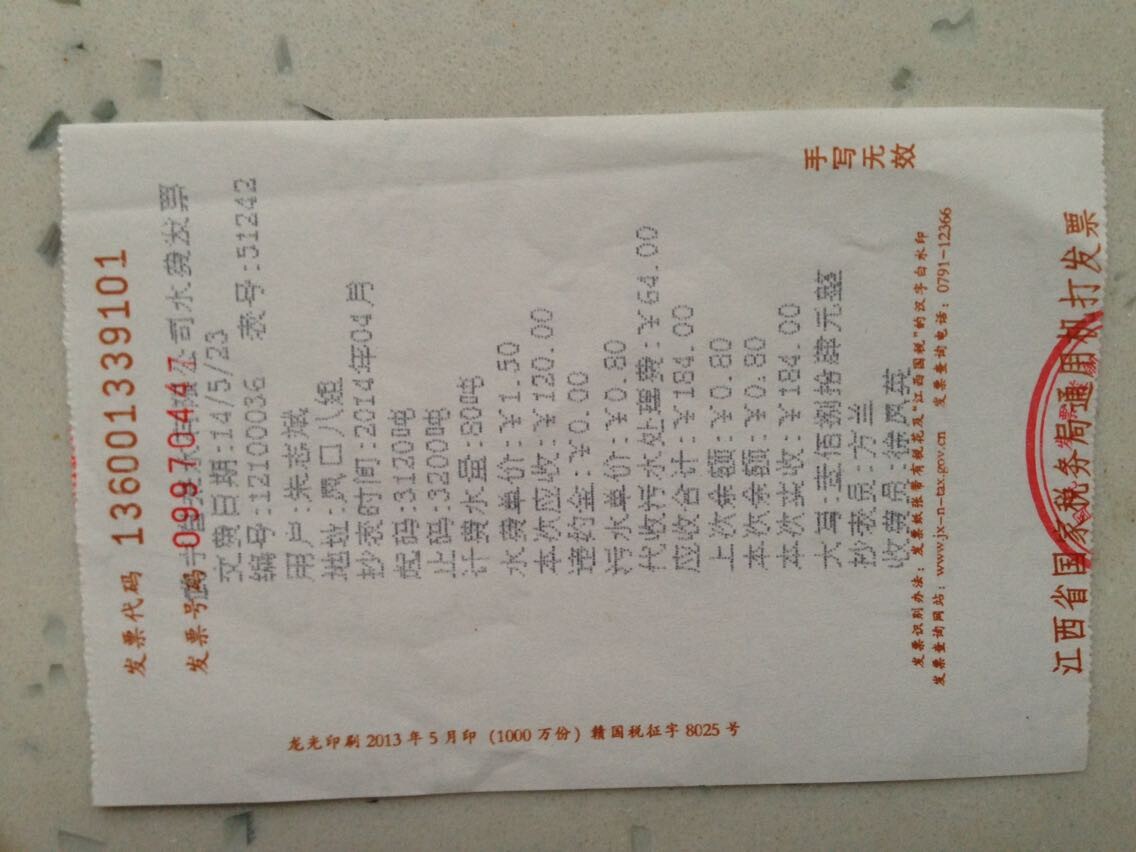 发票代码 136001339101
发票号码 09970447
公司水费发票
交费日期:14/5/23
编号:12100036 表号:51242
用户:朱志斌
地址:凤口八组
抄表时间:2014年04月
起码:3120吨
止码:3200吨
计费水量:80吨
水费单价:￥1.50
本次应收:￥120.00
违约金:￥0.00
污水单价:￥0.80
代收污水处理费:￥64.00
应收合计:￥184.00
上次余额:￥0.80
本次余额:￥0.80
本次实收:￥184.00
大写:壹佰捌拾肆元整
抄表员:方兰
收费员:徐凤英
手写无效
发票识别办法:发票纸张带有税花及"江西国税"的汉字白水印
发票查询网站:www.jx-n-tax.gov.cn 发票查询电话:0791-12366
江西省国家税务局通用机打发票
龙光印刷2013年5月印(1000万份)赣国税征字8025号